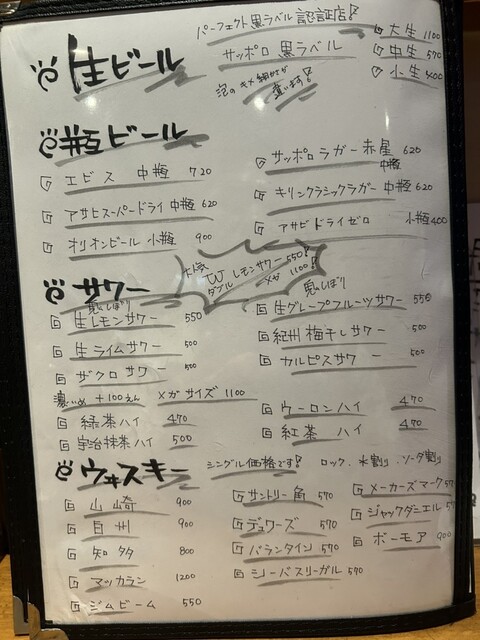 パーフェクト黒ラベル認証店!
生ビール サッポロ黒ラベル
大生 1100
中生 570
小生 400
泡のキメ細かさが
違います!
瓶ビール
エビス 中瓶 720
アサヒスーパードライ 中瓶 620
オリオンビール 小瓶 900
サッポロラガー 赤星 中瓶 620
キリンクラシックラガー 中瓶 620
アサヒドライゼロ 小瓶 400
サワー
人気 W レモンサワー 550!
ダブル メガ 1100!
生しぼり
生レモンサワー 550
生ライムサワー 500
ザクロサワー 500
濃いめ +100えん メガサイズ 1100
緑茶ハイ 470
宇治抹茶ハイ 500
生グレープフルーツサワー 550
紀州梅干しサワー 500
カルピスサワー 500
ウーロンハイ 470
紅茶ハイ 470
ウヰスキー シングル価格です! ロック、水割り、ソーダ割り
山崎 900
白州 900
知多 800
マッカラン 1200
ジムビーム 550
サントリー角 570
デュワーズ 570
バランタイン 570
シーバスリーガル 570
メーカーズマーク 57
ジャックダニエル 57
ボーモア 900